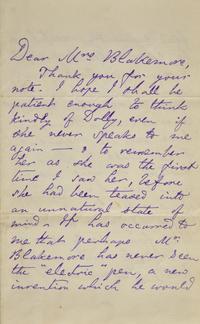 Dear Mrs Blakemore,
Thank you for your
note. I hope I shall be
patient enough to think
kindly of Dolly, even if
she never speaks to me
again — & to remember
her as she was the first
time I saw her, before
she had been teased into
an unnatural state of
mind. It has occurred to
me that perhaps Mr.
Blakemore has never seen
the "electric" pen, a new
invention which he would